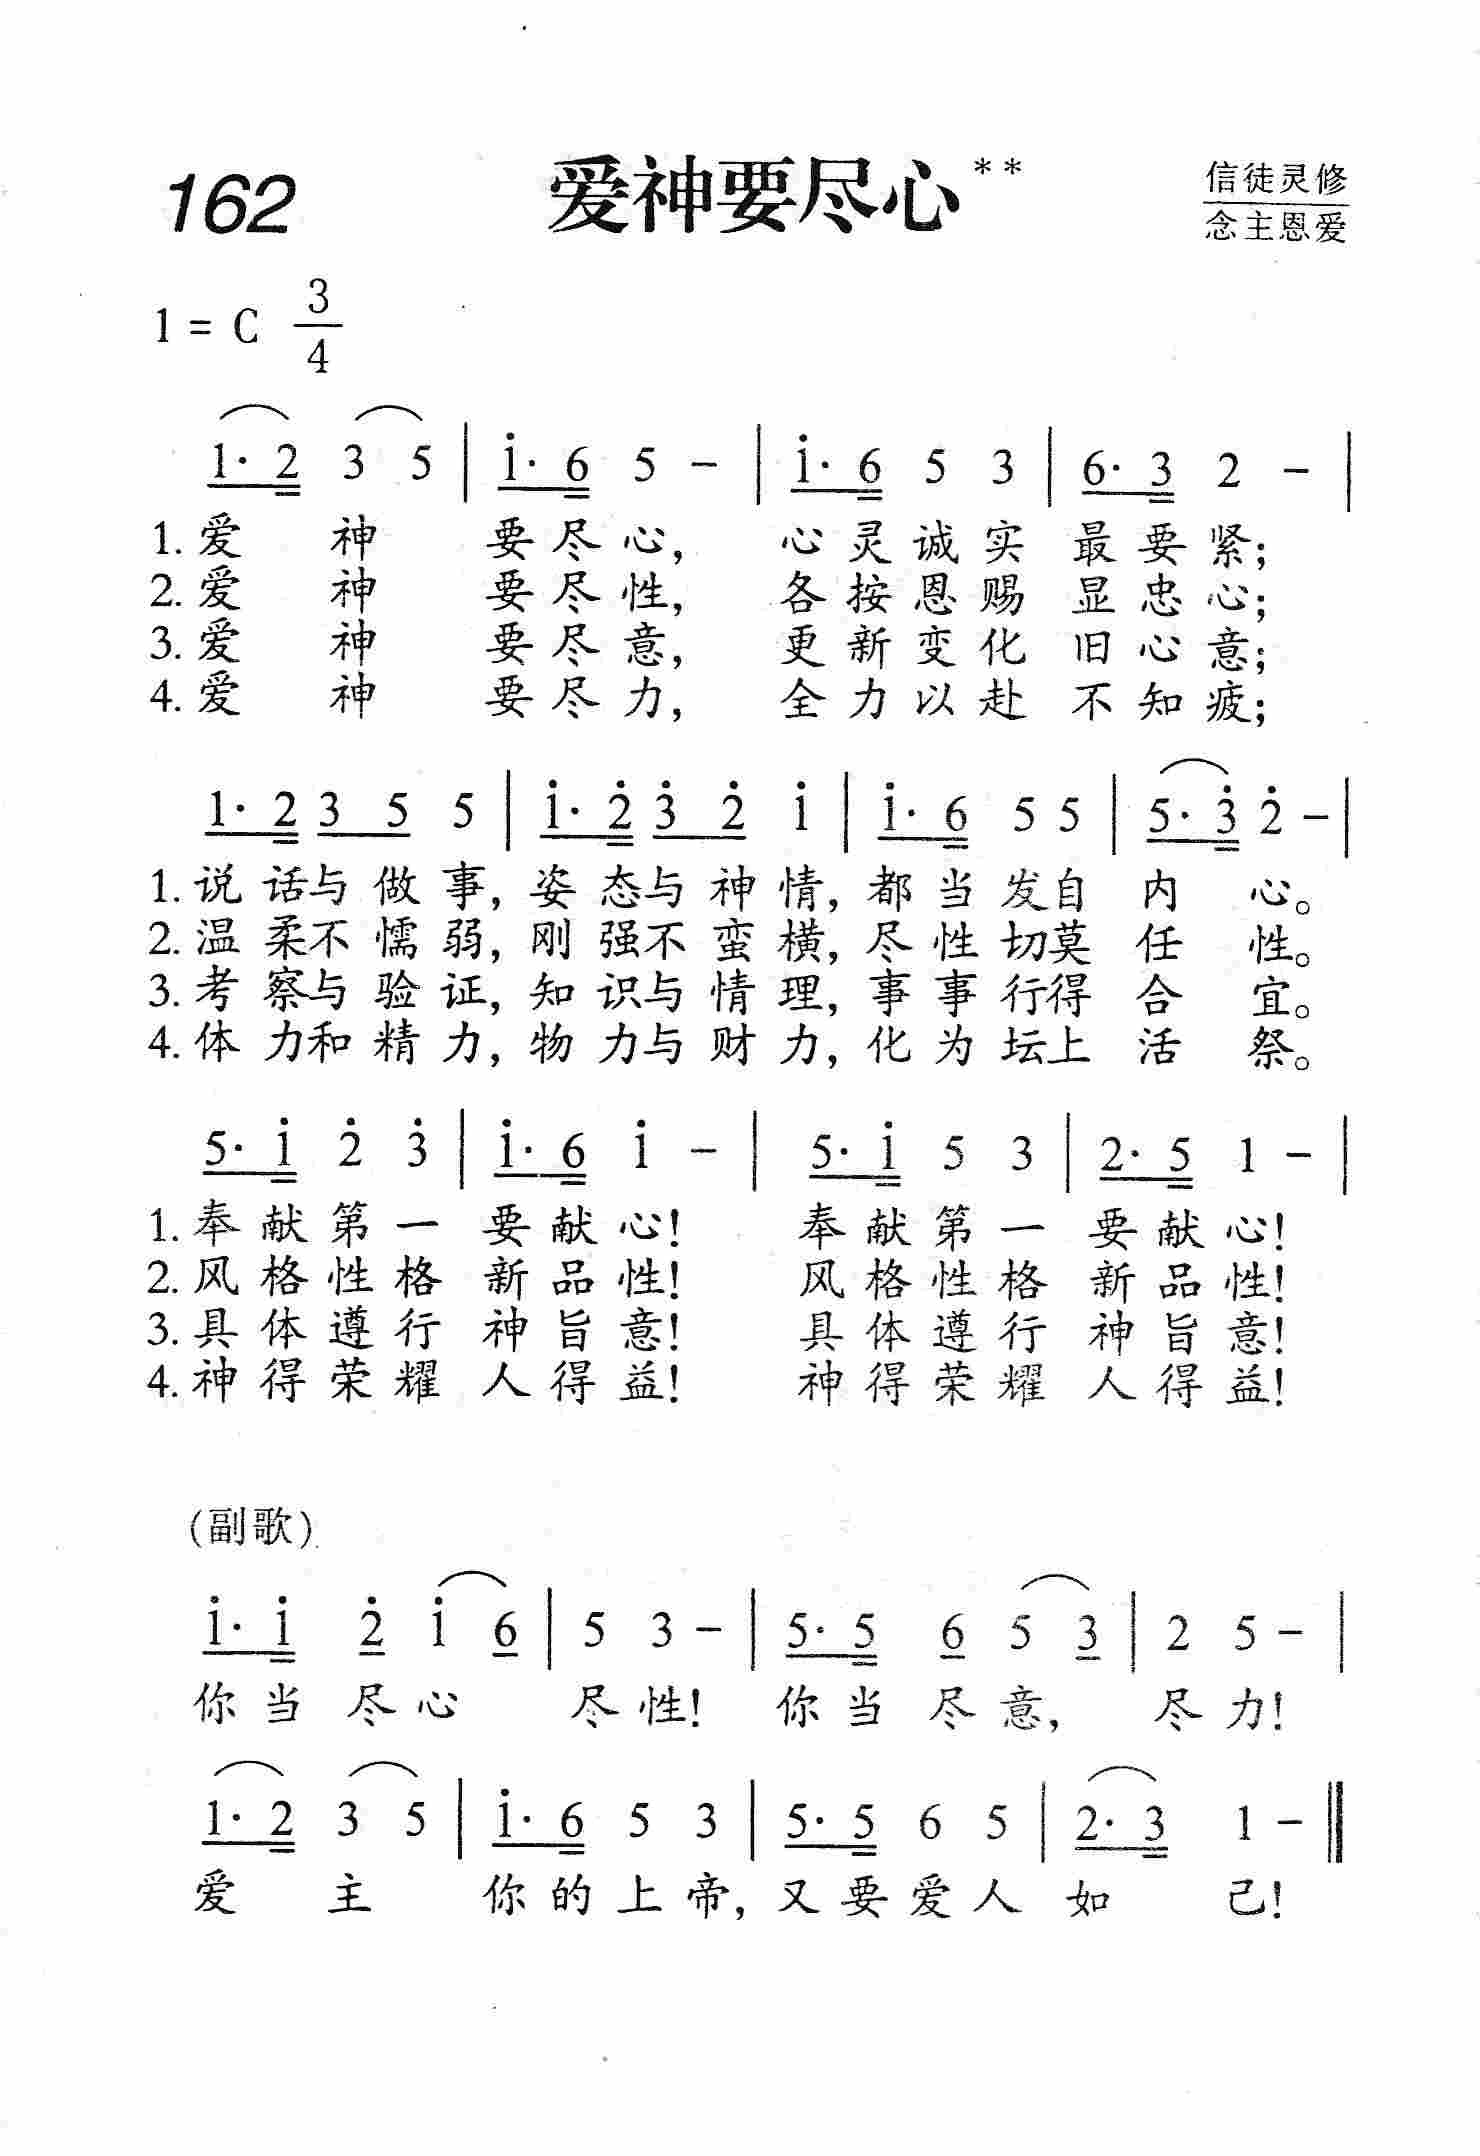 162
爱神要尽心**
信徒灵修
念主恩爱
1 = C 3/4
1· 2 3 5 | i· 6 5 - | i· 6 5 3 | 6· 3 2 - |
1. 爱 神 要 尽 心, 心 灵 诚 实 最 要 紧;
2. 爱 神 要 尽 性, 各 按 恩 赐 显 忠 心;
3. 爱 神 要 尽 意, 更 新 变 化 旧 心 意;
4. 爱 神 要 尽 力, 全 力 以 赴 不 知 疲;
1· 2 3 5 5 | i· 2̇ 3̇ 2̇ i | i· 6 5 5 | 5· 3̇ 2̇ - |
1. 说 话与 做 事, 姿 态与 神 情, 都 当 发自 内 心。
2. 温 柔不 懦 弱, 刚 强不 蛮 横, 尽 性 切莫 任 性。
3. 考 察与 验 证, 知 识与 情 理, 事 事 行得 合 宜。
4. 体 力和 精 力, 物 力与 财 力, 化 为 坛上 活 祭。
5· i 2̇ 3̇ | i· 6 i - | 5· i 5 3 | 2· 5 1 - |
1. 奉 献 第 一 要 献 心! 奉 献 第 一 要 献 心!
2. 风 格 性 格 新 品 性! 风 格 性 格 新 品 性!
3. 具 体 遵 行 神 旨 意! 具 体 遵 行 神 旨 意!
4. 神 得 荣 耀 人 得 益! 神 得 荣 耀 人 得 益!
(副歌)
i· i 2̇ i 6 | 5 3 - | 5· 5 6 5 3 | 2 5 - |
你 当 尽 心 尽 性! 你 当 尽 意, 尽 力!
1· 2 3 5 | i· 6 5 3 | 5· 5 6 5 | 2· 3 1 - ‖
爱 主 你 的 上 帝, 又 要 爱 人 如 己!